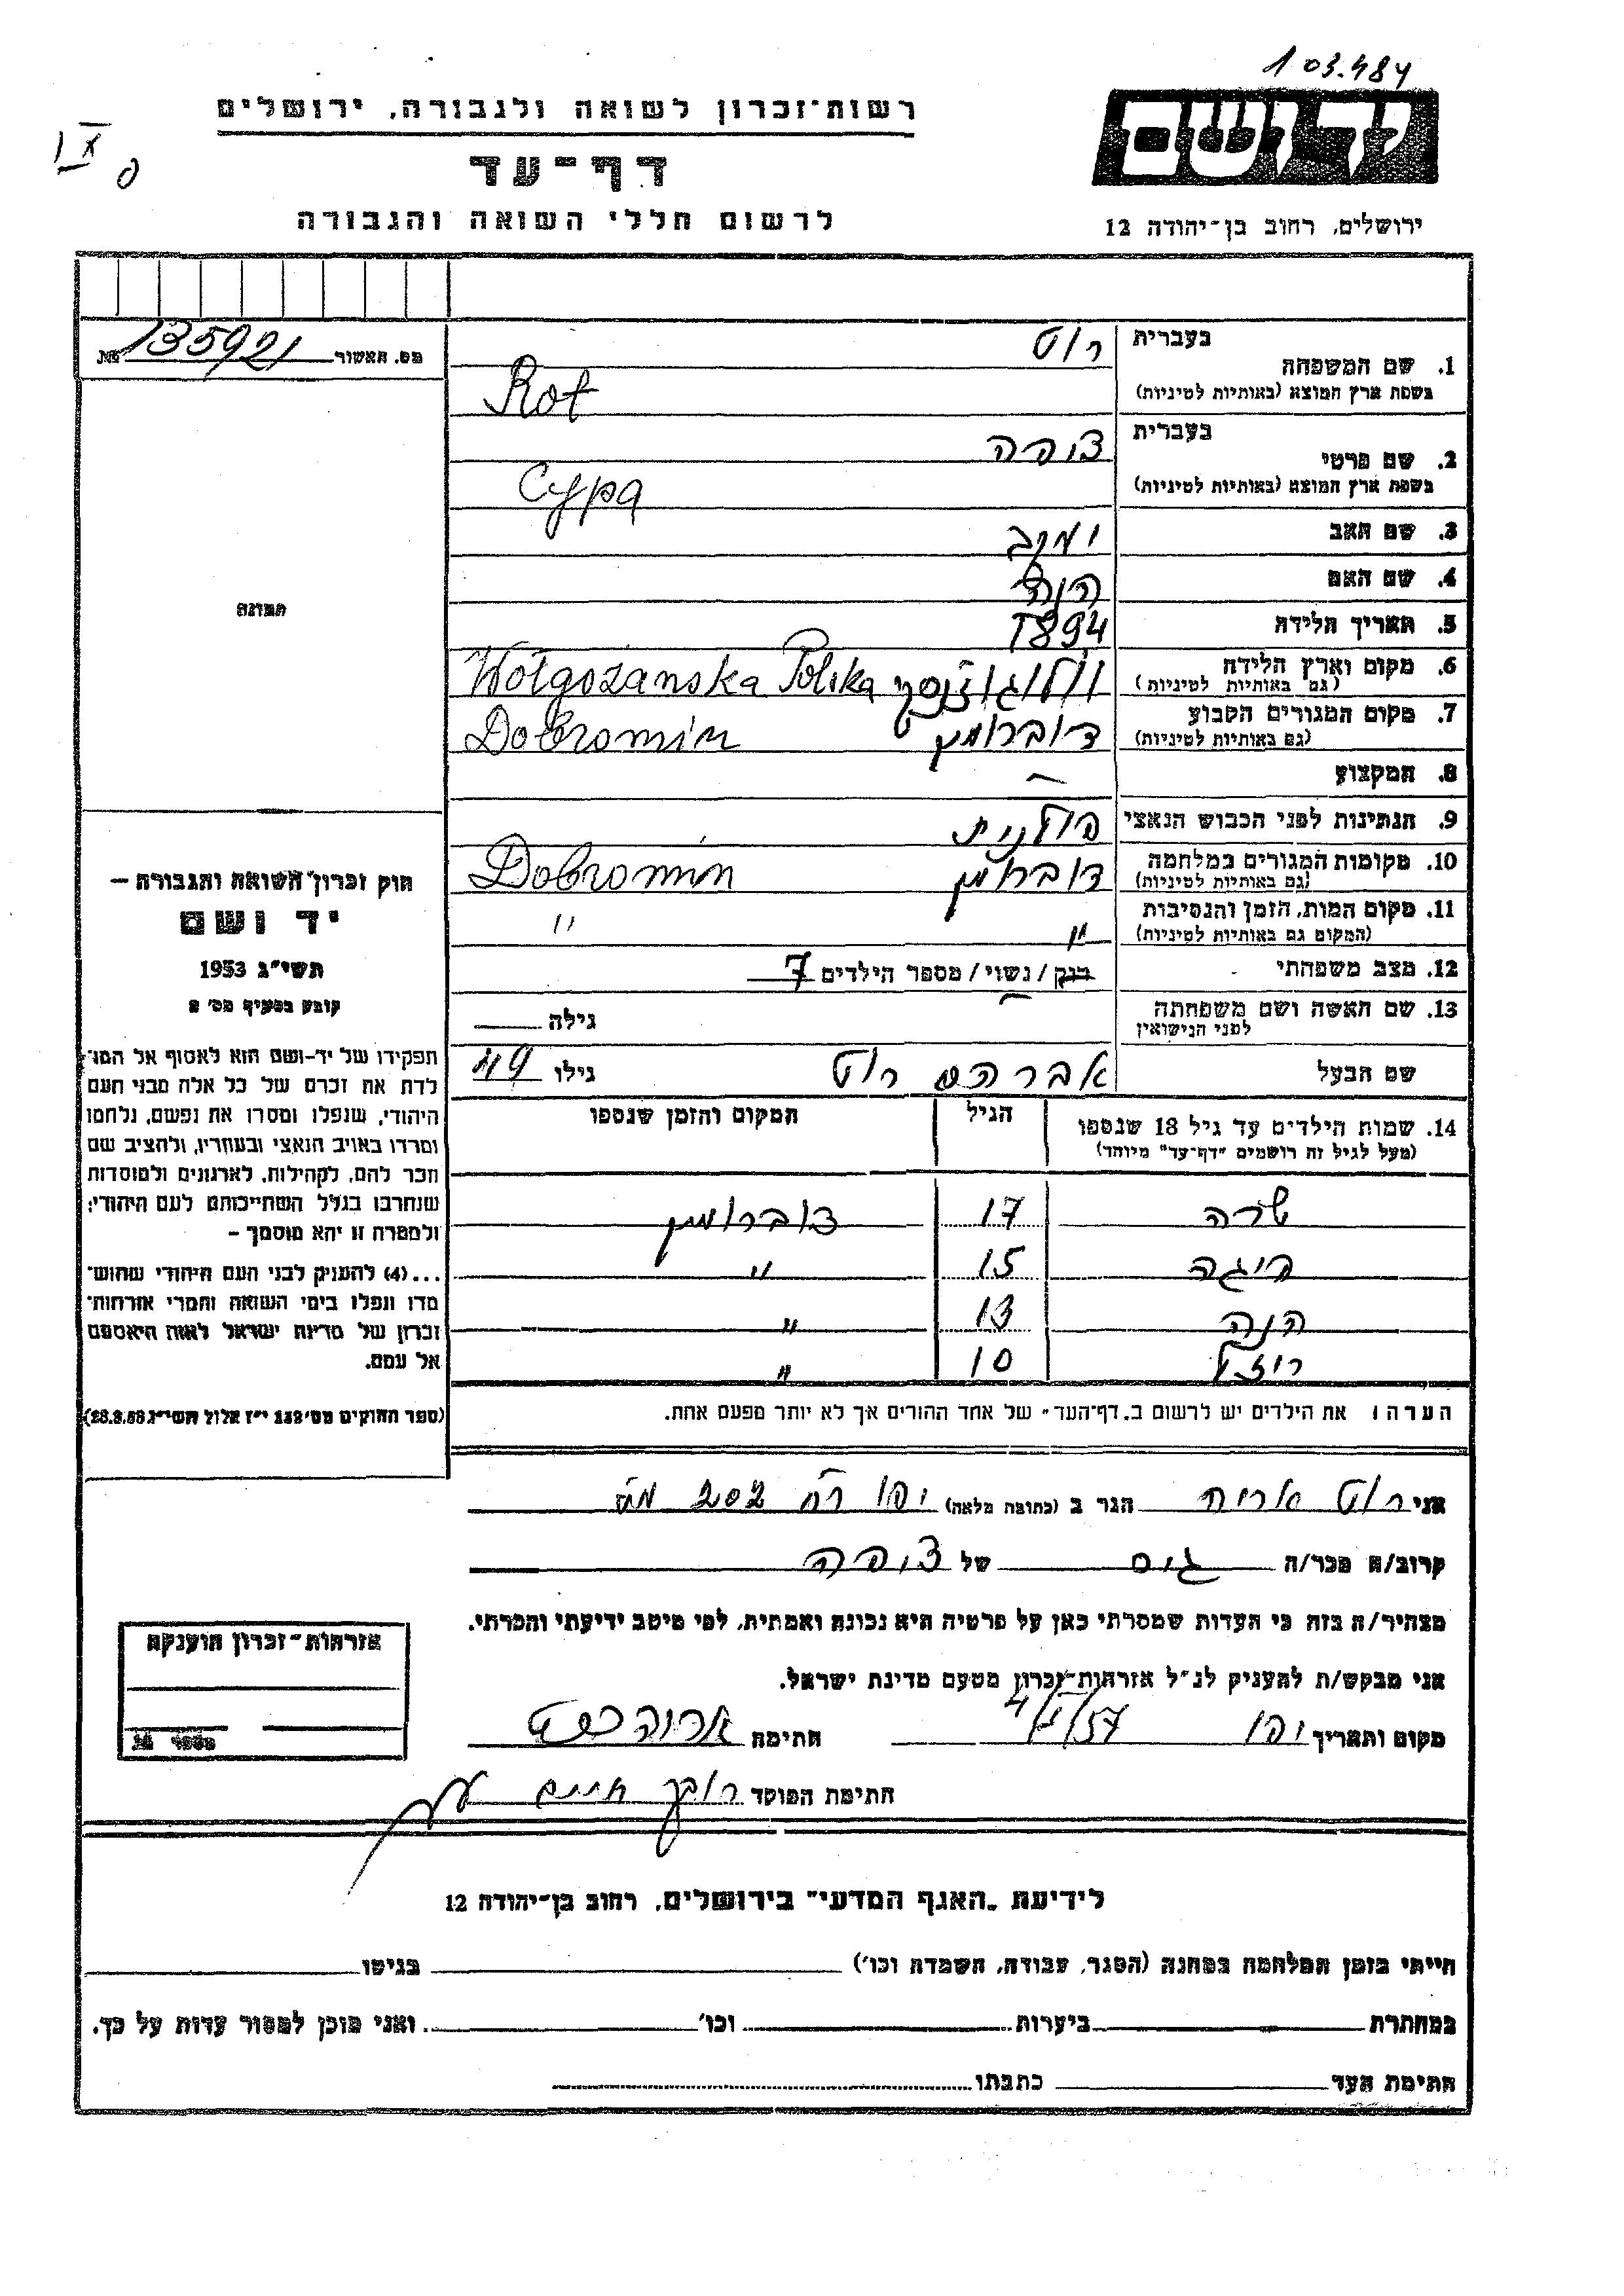 103.484
רשות־זכרון לשואה ולגבורה, ירושלים
דף־עד
לרשום חללי השואה והגבורה
יד ושם
ירושלים, רחוב בן־יהודה 12
מס. האשור 135921 №
תמונה
חוק זכרון השואה והגבורה —
יד ושם
תשי"ג 1953
קובע בסעיף מס' 2
תפקידו של יד-ושם הוא לאסוף אל המו־
לדת את זכרם של כל אלה מבני העם
היהודי, שנפלו ומסרו את נפשם, נלחמו
ומרדו באויב הנאצי ובעוזריו, ולהציב שם
וזכר להם, לקהילות, לארגונים ולמוסדות
שנחרבו בגלל השתייכותם לעם היהודי;
ולמטרה זו יהא מוסמך –
...(4) להעניק לבני העם היהודי שהוש־
מדו ונפלו בימי השואה והמרי אזרחות־
זכרון של מדינת ישראל לאות היאספם
אל עמם.
(ספר החוקים מס' 132 י"ז אלול תשי"ג 28.8.53)
1. שם המשפחה
בעברית רוט
בשפת ארץ המוצא (באותיות לטיניות) Rot
2. שם פרטי
בעברית ציפה
בשפת ארץ המוצא (באותיות לטיניות) Cypa
3. שם האב יעקב
4. שם האם
5. תאריך הלידה 1894
6. מקום וארץ הלידה
(גם באותיות לטיניות) Wołgożanska Polska
7. מקום המגורים הקבוע דוברומין
(גם באותיות לטיניות) Dobromin
8. המקצוע —
9. הנתינות לפני הכבוש הנאצי פולנית
10. מקומות המגורים במלחמה דוברומין
(גם באותיות לטיניות) Dobromin
11. מקום המות, הזמן והנסיבות "
(המקום גם באותיות לטיניות) "
12. מצב משפחתי רווק / נשוי / מספר הילדים 7
13. שם האשה ושם משפחתה — גילה
לפני הנישואין
שם הבעל אברהם רוט גילו 49
14. שמות הילדים עד גיל 18 שנספו הגיל המקום והזמן שנספו
(מעל לגיל זה רושמים "דף־עד" מיוחד)
שרה 17 דוברומין
פיגה 15 "
חנה 13 "
רוזל 10 "
הערה: את הילדים יש לרשום ב„דף־העד" של אחד ההורים אך לא יותר מפעם אחת.
אני רוט אריה הגר ב (כתובת מלאה) יפו רח 202
קרוב/ה מכר/ה גיס של ציפה
מצהיר/ה בזה כי העדות שמסרתי כאן על פרטיה היא נכונה ואמתית, לפי מיטב ידיעתי והכרתי.
אני מבקש/ת להעניק לנ"ל אזרחות־זכרון מטעם מדינת ישראל.
מקום ותאריך יפו חתימה אריה רוט
חתימת הפוקד
אזרחות־זכרון הוענקה
לידיעת „האגף המדעי" בירושלים, רחוב בן־יהודה 12
הייתי בזמן המלחמה במחנה (הסגר, עבודה, השמדה וכו') בגיטו
במחתרת ביערות וכו' ואני מוכן למסור עדות על כך.
חתימת העד כתבתו